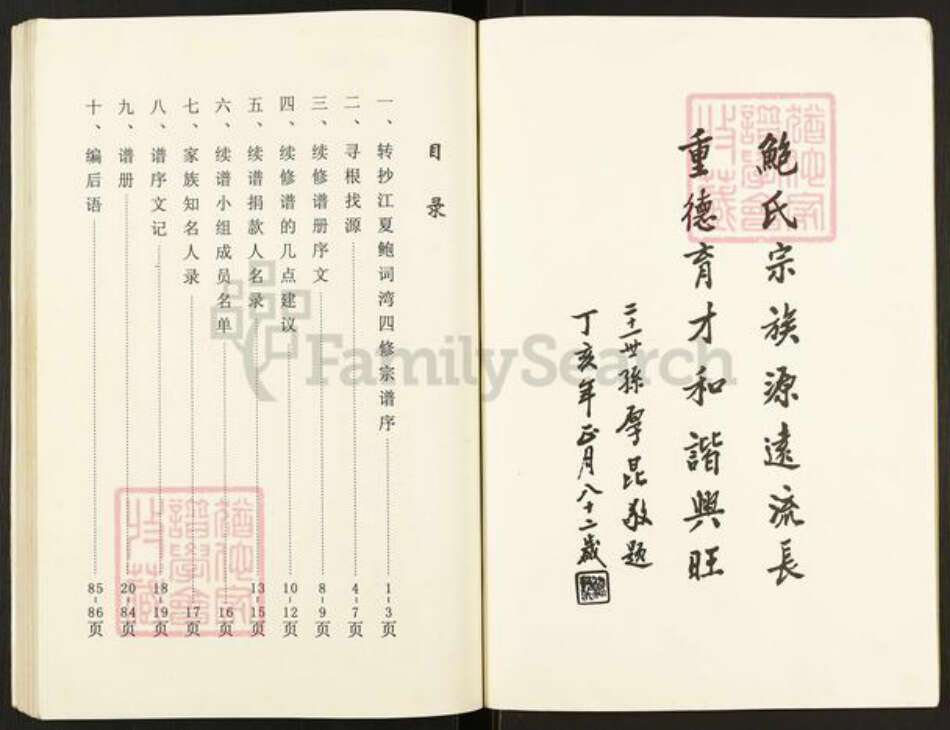 鲍氏宗族源遠流長
重德育才和諧興旺
二十一世孫厚昆敬題
丁亥年正月八十二歲
目录
一、转抄江夏鲍词湾四修宗谱序 1-3页
二、寻根找源 4-7页
三、续修谱册序文 8-9页
四、续修谱的几点建议 10-12页
五、续谱捐款人名录 13-15页
六、续谱小组成员名单 16页
七、家族知名人录 17页
八、谱序文记 18-19页
九、谱册 20-84页
十、编后语 85-86页
FamilySearch